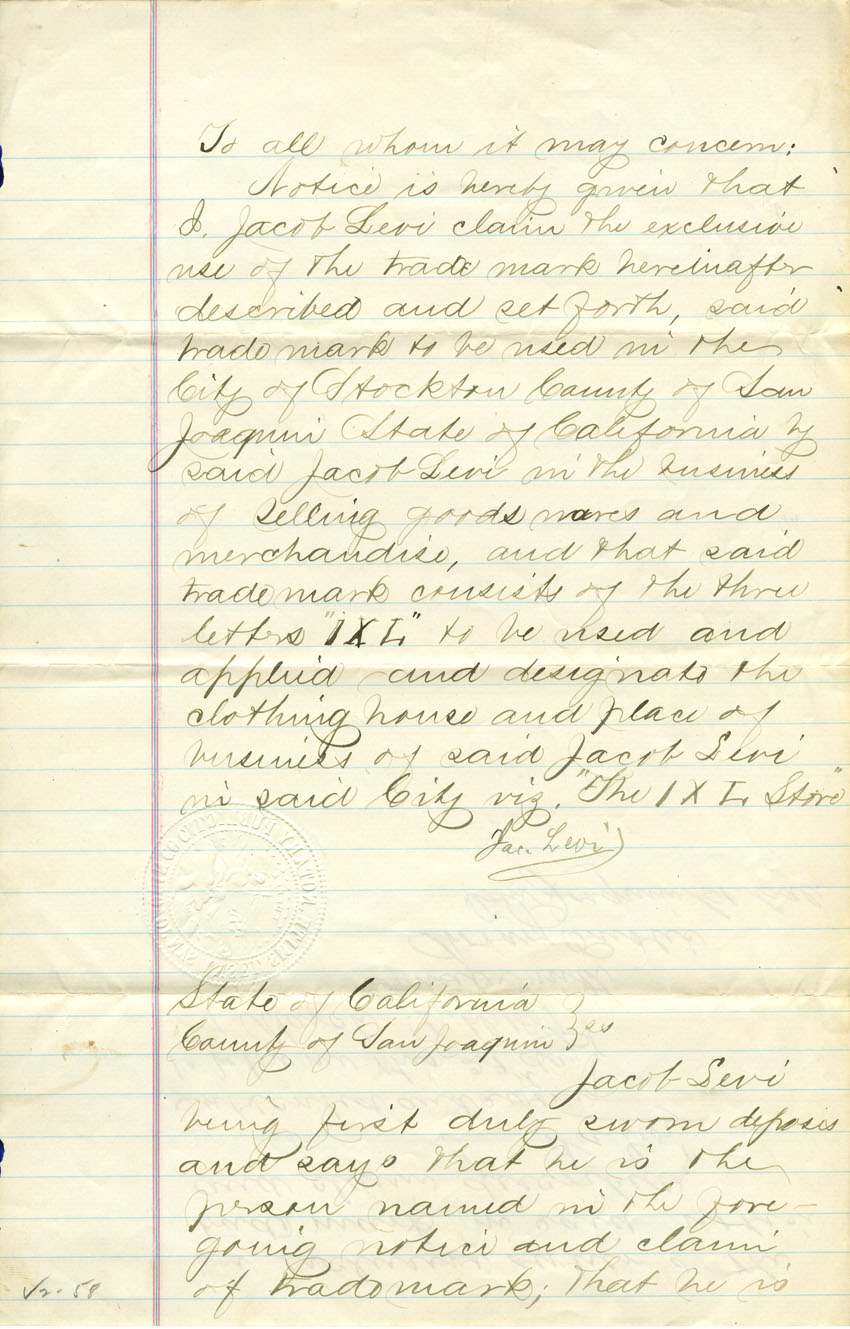 To all whom it may concern:
Notice is hereby given that
I. Jacob Levi claim the exclusive
use of the trade mark hereinafter
described and set forth, said
trade mark to be used in the
City of Stockton County of San
Joaquin State of California by
said Jacob Levi in the business
of selling goods wares and
merchandise, and that said
trade mark consists of the three
letters "IXL" to be used and
applied and designate the
clothing house and place of
business of said Jacob Levi
in said City viz. "The I X L Store"
Jac. Levi
State of California
County of San Joaquin } ss
Jacob Levi
being first duly sworn deposes
and says that he is the
person named in the fore-
going notice and claim
of trademark; that he is